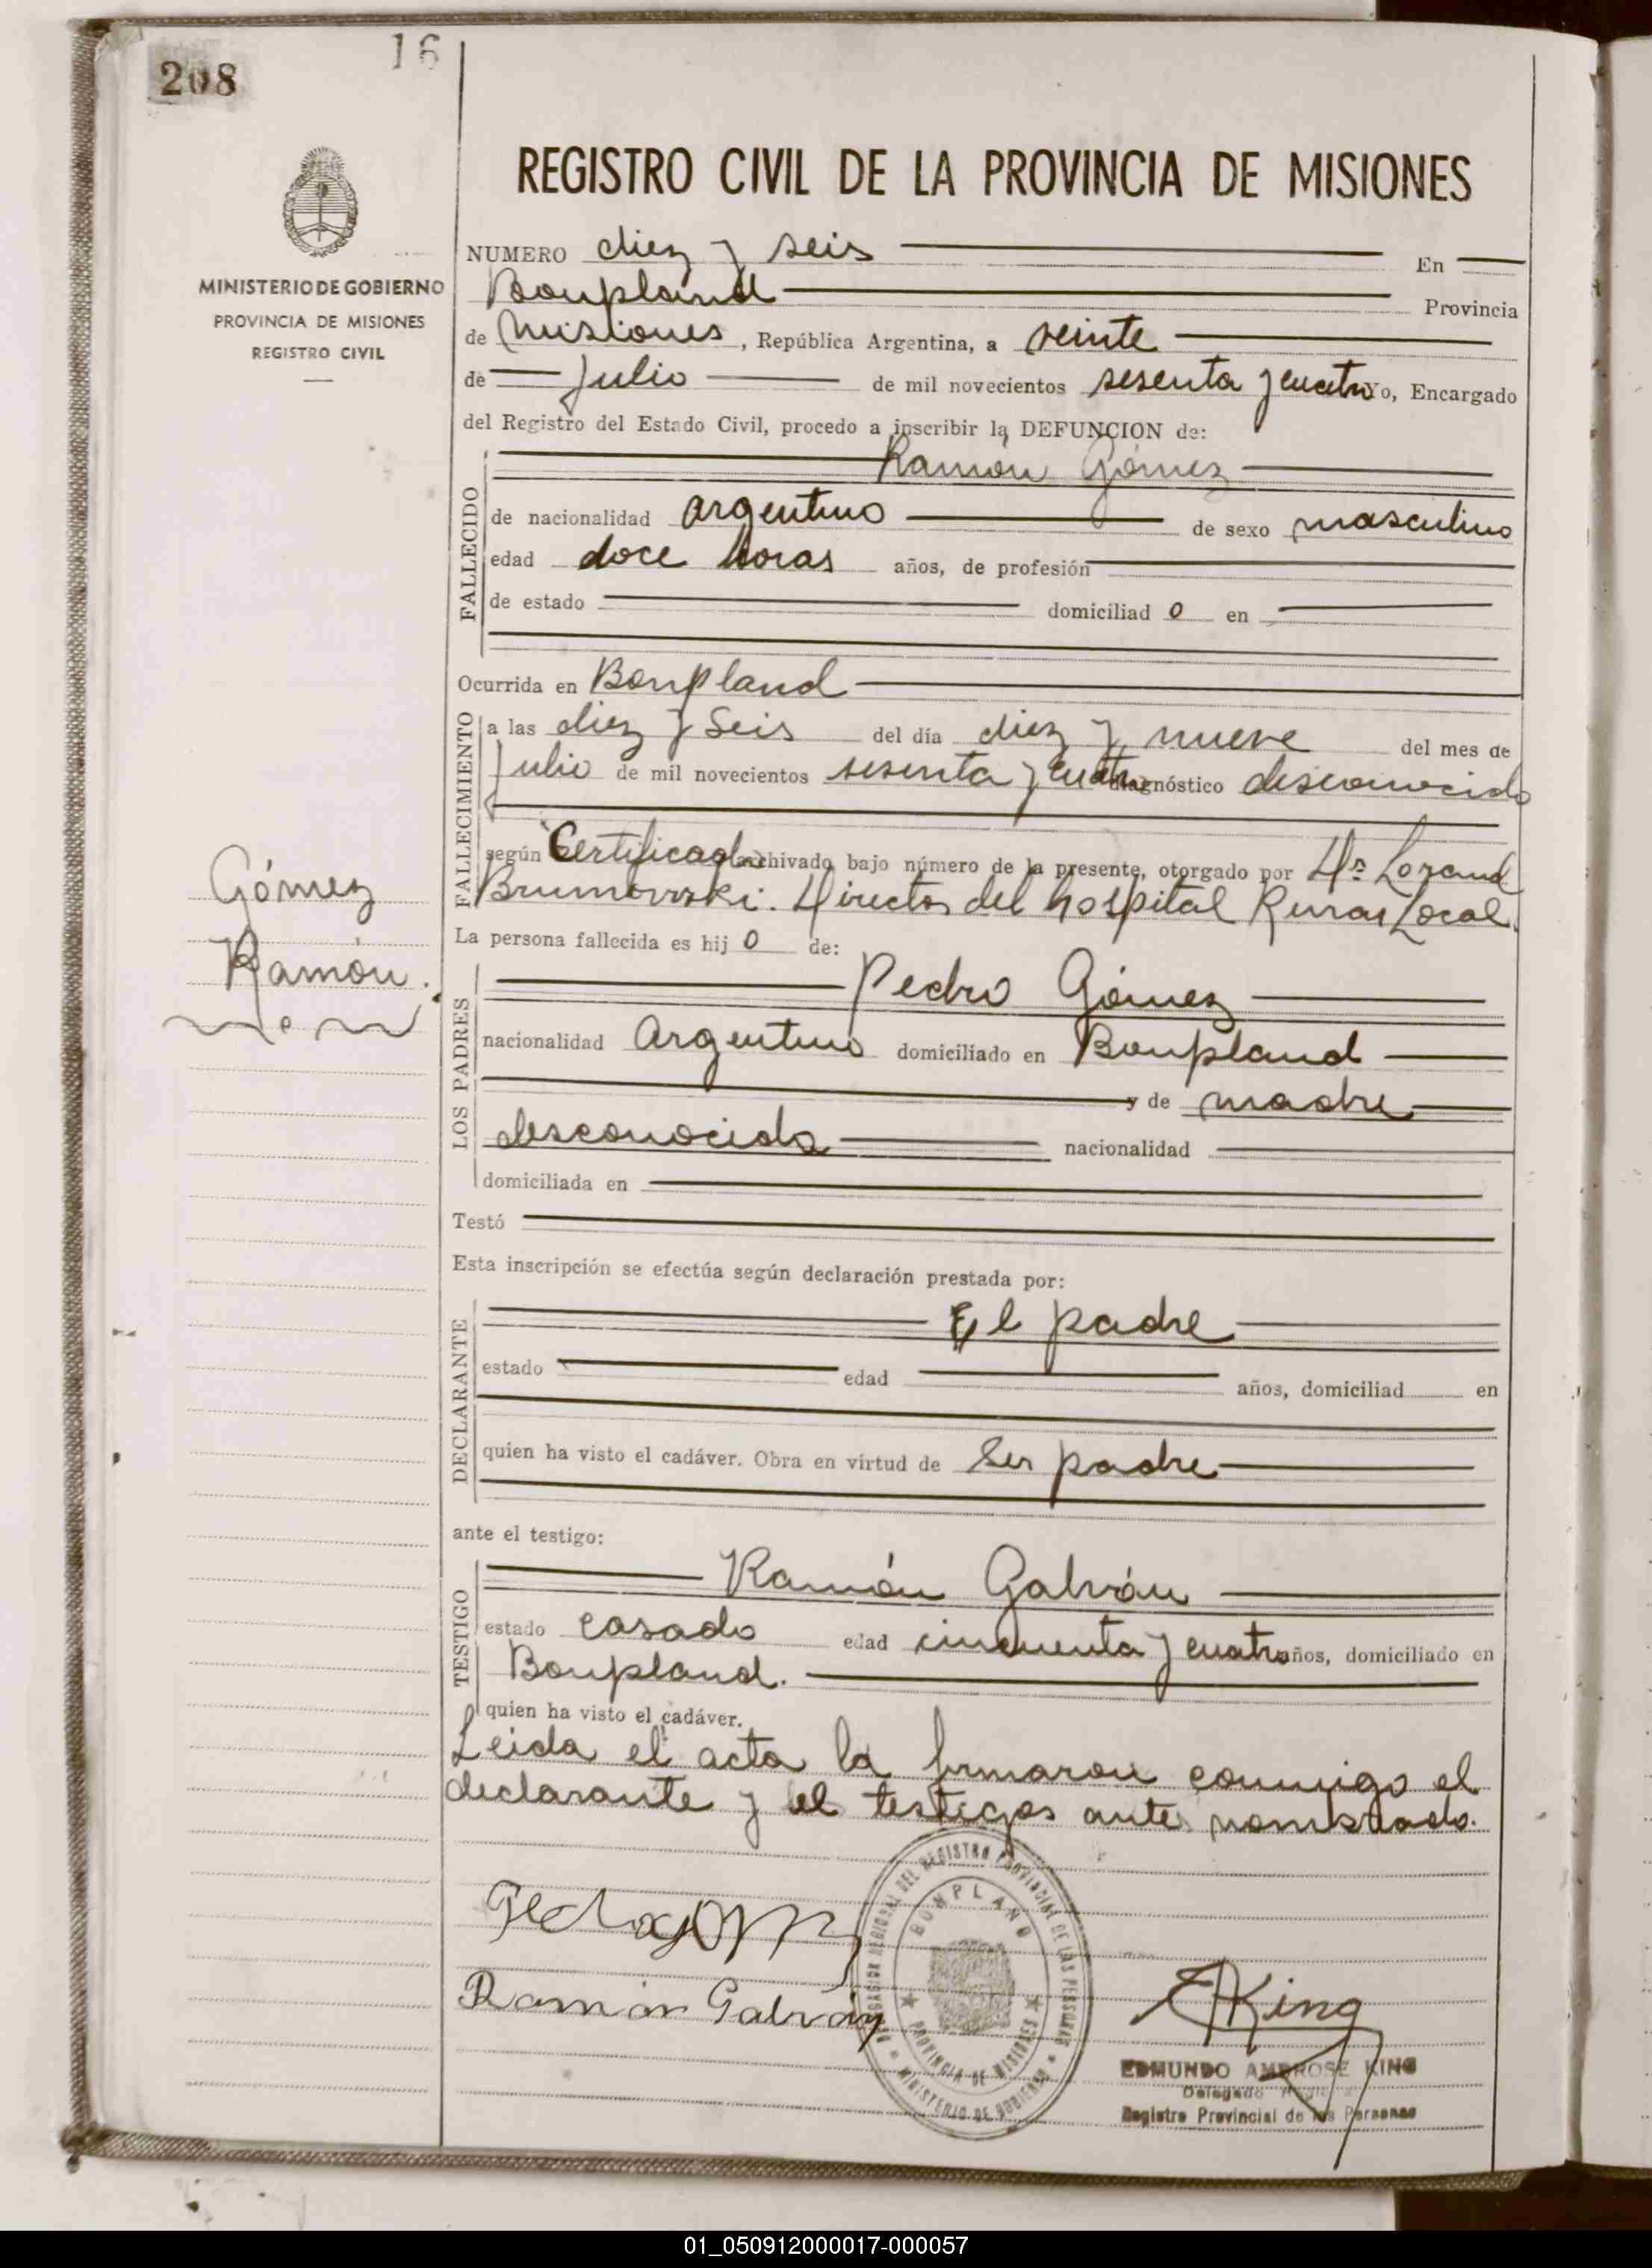 208
16
REGISTRO CIVIL DE LA PROVINCIA DE MISIONES
MINISTERIO DE GOBIERNO
PROVINCIA DE MISIONES
REGISTRO CIVIL
NUMERO diez y seis En
Bonpland Provincia
de Misiones, República Argentina, a veinte
de Julio de mil novecientos sesenta y cuatro Yo, Encargado
del Registro del Estado Civil, procedo a inscribir la DEFUNCION de:
Ramón Gómez
FALLECIDO
de nacionalidad argentino de sexo masculino
edad doce horas años, de profesión
de estado domiciliad o en
Ocurrida en Bonpland
FALLECIMIENTO
a las diez y seis del día diez y nueve del mes de
Julio de mil novecientos sesenta y cuatro diagnóstico desconocido
según Certificado archivado bajo número de la presente, otorgado por Dr. Lorand
Brumovski. Director del hospital Rural Local.
Gómez
Ramón.
La persona fallecida es hij o de:
LOS PADRES
Pedro Gómez
nacionalidad Argentino domiciliado en Bonpland
y de madre
desconocida nacionalidad
domiciliada en
Testó
Esta inscripción se efectúa según declaración prestada por:
DECLARANTE
El padre
estado edad años, domiciliad en
quien ha visto el cadáver. Obra en virtud de Ser padre
ante el testigo:
TESTIGO
Ramón Galván
estado casado edad cincuenta y cuatro años, domiciliado en
Bonpland.
quien ha visto el cadáver.
Leida el acta la firmaron conmigo el
declarante y el testigos ante nombrado.
DELEGACION REGIONAL DEL REGISTRO PROVINCIAL DE LAS PERSONAS
BONPLAND
PROVINCIA DE MISIONES
MINISTERIO DE GOBIERNO
Ramón Galván
EKing
EDMUNDO AMBROSE KING
Delegado
Registro Provincial de las Personas
01_050912000017-000057